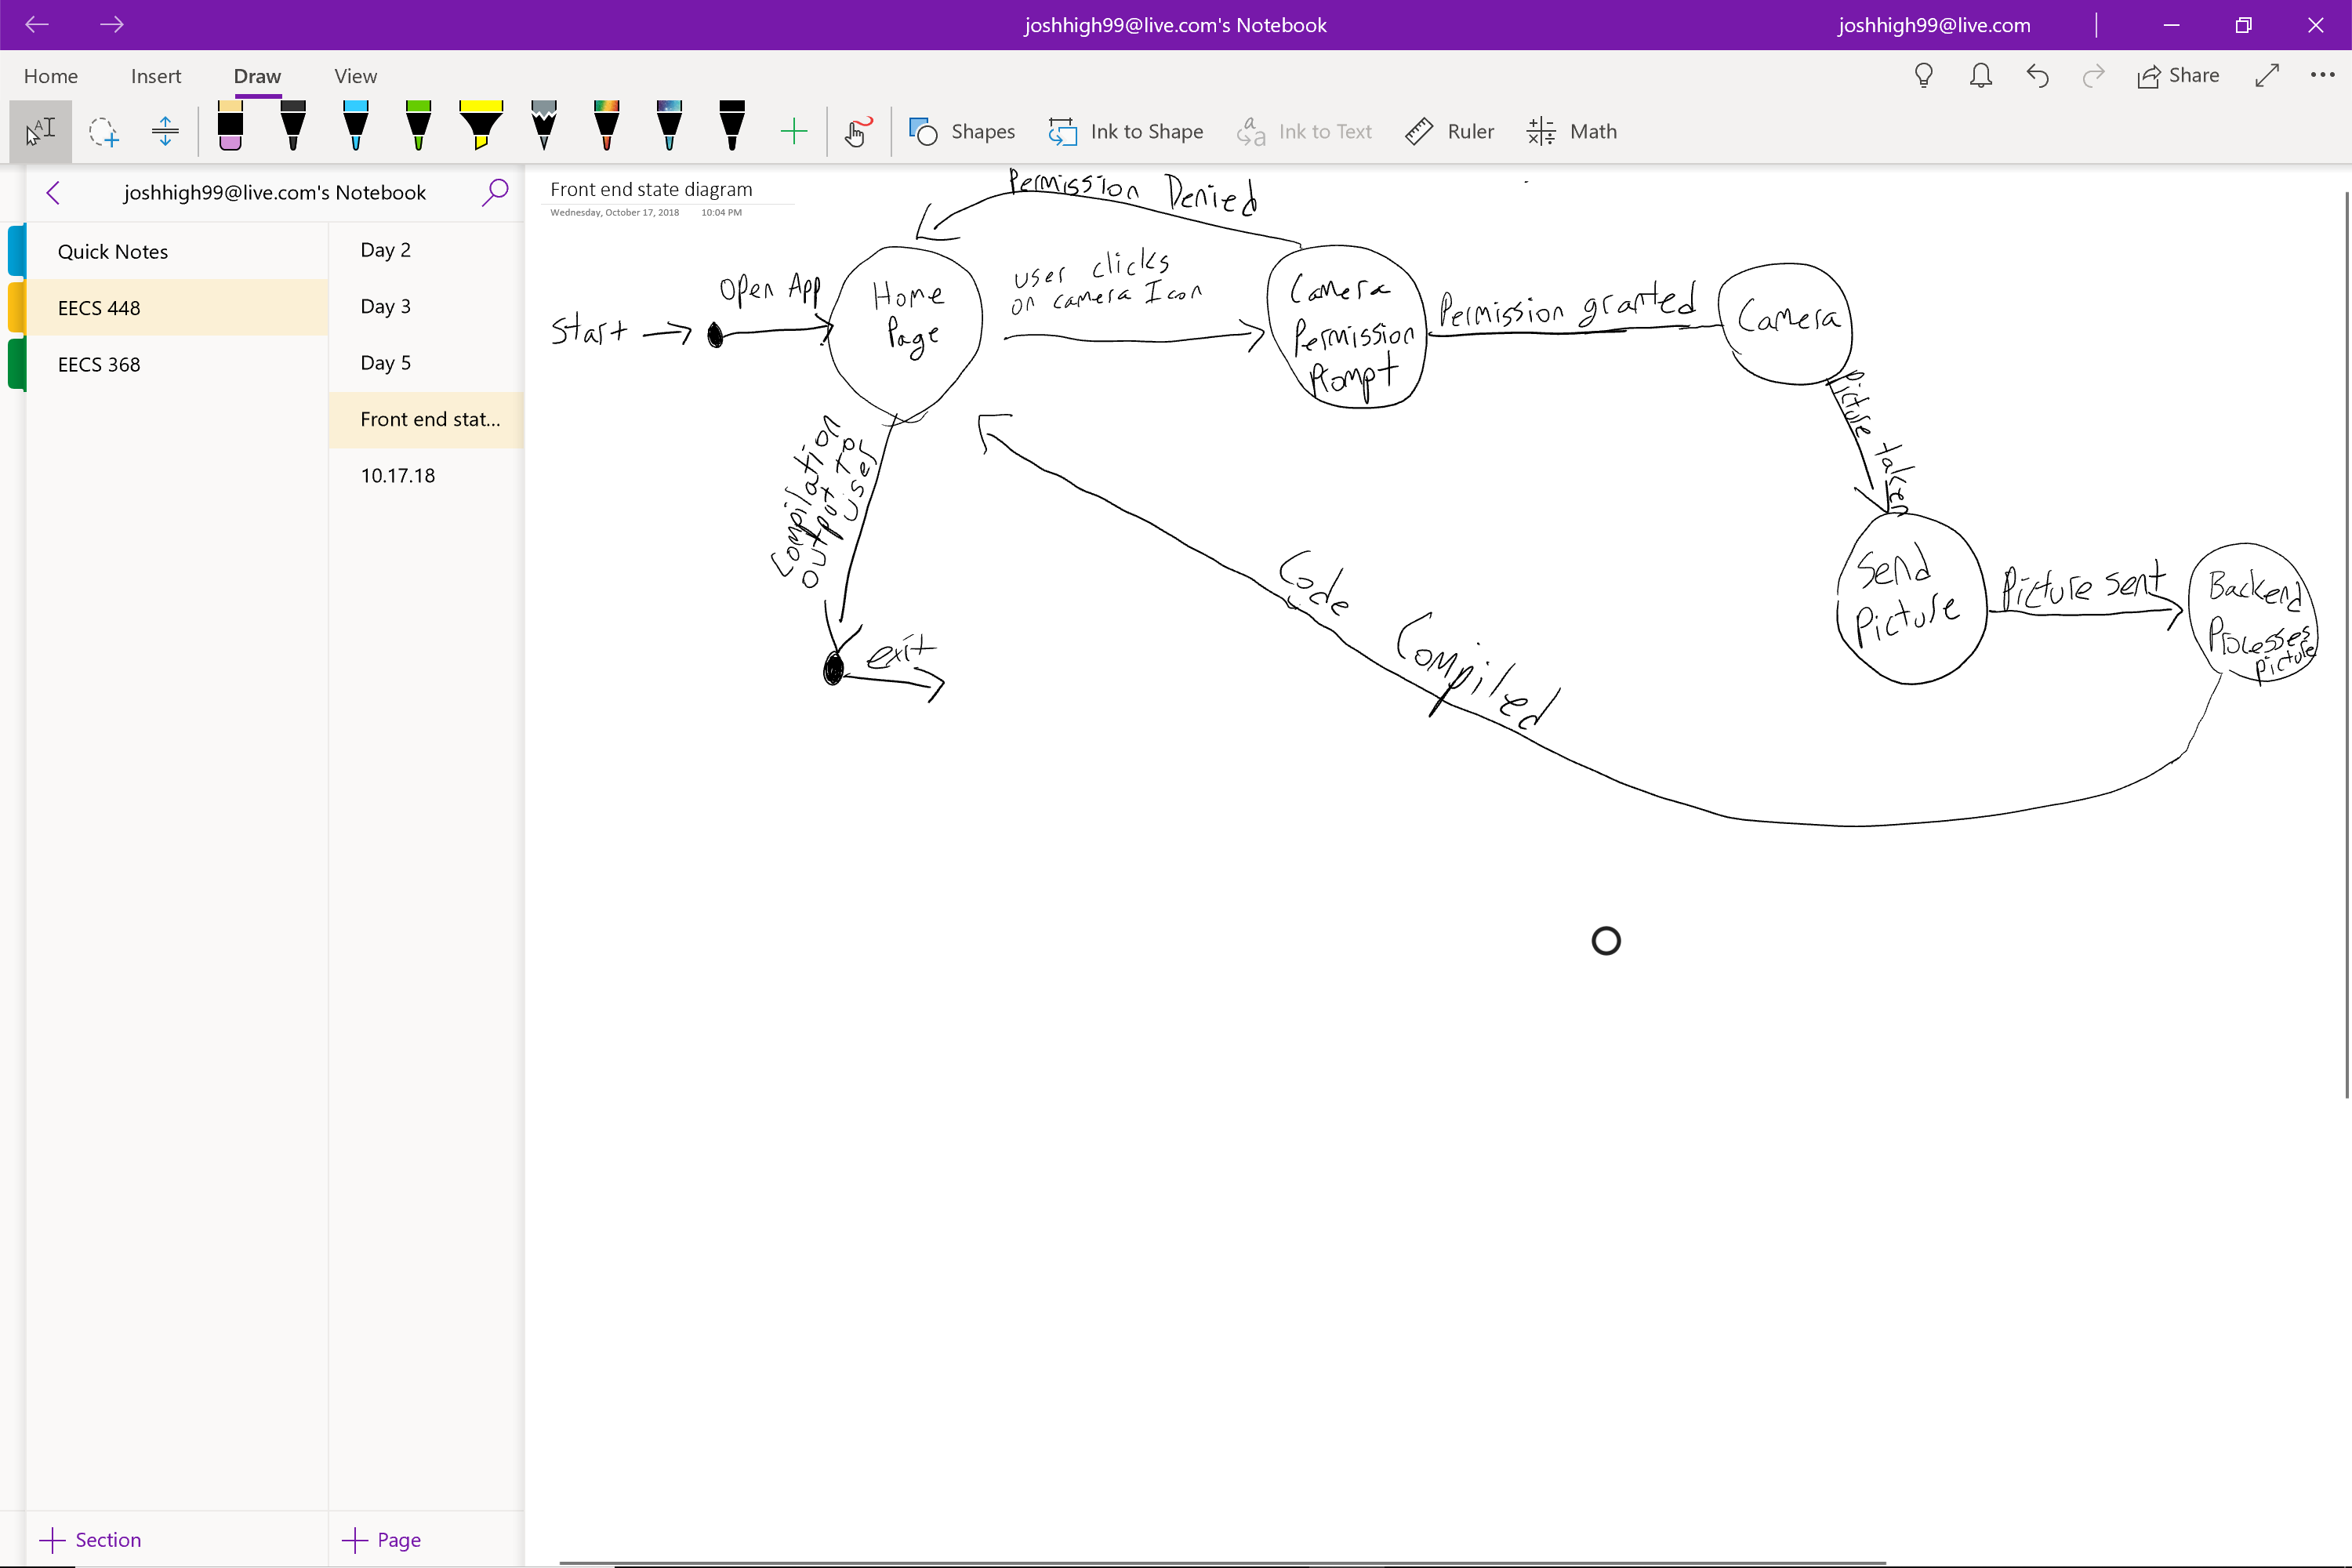 joshhigh99@live.com's Notebook
joshhigh99@live.com
Home
Insert
Draw
View
Share
Shapes
Ink to Shape
Ink to Text
Ruler
Math
joshhigh99@live.com's Notebook
Quick Notes
EECS 448
EECS 368
Day 2
Day 3
Day 5
Front end stat...
10.17.18
Section
Page
Front end state diagram
Wednesday, October 17, 2018 10:04 PM
Permission Denied
Start
Open App
Home
Page
user clicks
on camera Icon
Camera
Permission
Prompt
Permission granted
Camera
Picture taken
Send
Picture
Picture sent
Backend
Processes
picture
Code Compiled
Compilation
output to
user
exit